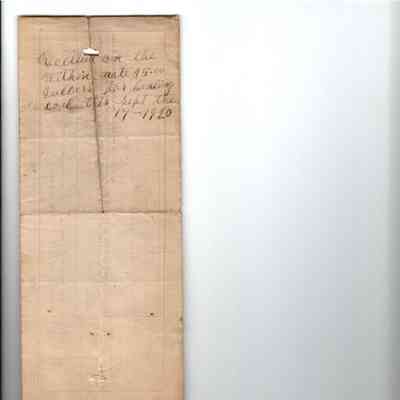 Credited on the
within note 95.00
Dollars for hauling
coal this Sept the
17 - 1920